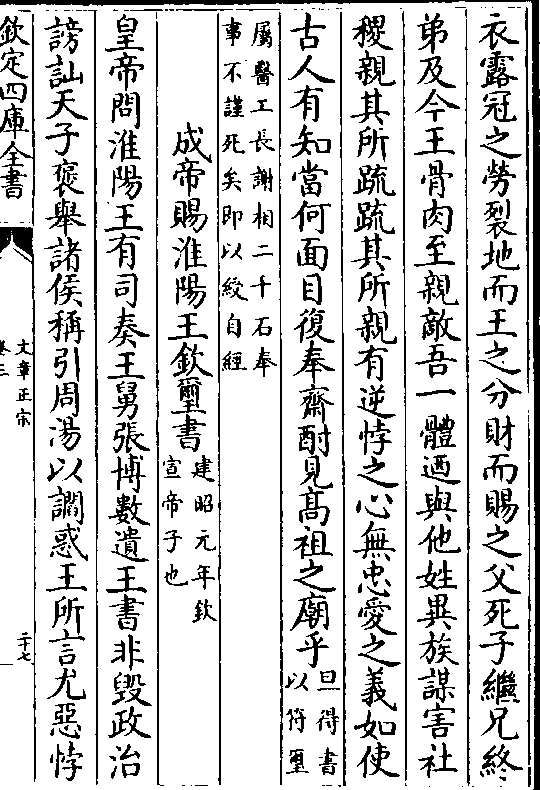 衣露冠之勞裂地而王之分財而賜之父死子繼兄終
弟及今王骨肉至親敵吾一體迺與他姓異族謀害社
稷親其所疏疏其所親有逆悖之心無忠愛之義如使
古人有知當何面目復奉齋酎見髙祖之廟乎旦得書以符璽
屬醫工長謝相二千石奉
事不謹死矣即以綬自絞
成帝賜淮陽王欽璽書建昭元年欽宣帝子也
皇帝問淮陽王有司奏王舅張博數遺王書非毀政治
謗訕天子襃舉諸侯稱引周湯以讇惑王所言尤惡悖
欽定四庫全書
文章正宗
卷三
二十七